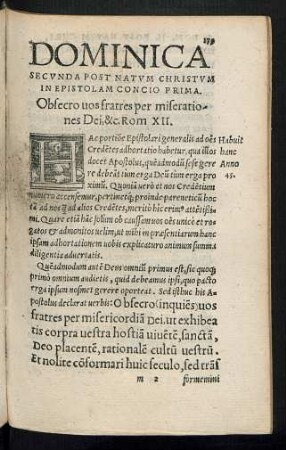 179
DOMINICA
SECVNDA POST NATVM CHRISTVM
IN EPISTOLAM CONCIO PRIMA.
Obsecro uos fratres per miseratio-
nes Dei.&c. Rom XII.
HAc portiõe Epistolari generalis ad oẽs
Credẽtes adhortatio habetur, qua illos
docet Apostolus, quẽadmodũ sese gere
re debeãt tum erga Deũ tum erga pro
ximũ. Quoniã uerò et nos Credẽtium
numero accensemur, pertinetq; proinde parenetica hoc
tã ad nos q̃ ad alios Credẽtes, meritò hic erim9 attẽtissi
mi. Quare etiã hãc solum ob caussam uos oẽs unicè et ro
gatos & admonitos uelim, ut mihi in præsentiarum hanc
ipsam adhortationem uobis explicaturo animum summa
diligentia aduertatis.
Habuit
hanc
Anno
45.
Quẽadmodum autẽ Deus omniũ primus est, sic quoq;
primò omnium audietis, quid debeamus ipsi, quo pacto
erga ipsum nosmet gerere oporteat. Sed istuc his A-
postolus declarat uerbis: Obsecro (inquiẽs) uos
fratres per misericordiã Dei. ut exhibea
tis corpra uestra hostiã uiuẽtẽ, sanctã,
Deo placentẽ, rationalẽ cultũ uestrũ.
Et nolite cõformari huic seculo, sed trãs
m 2 formemini